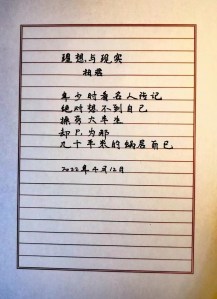 理想与现实
相君
年少时看名人传记
绝对想不到自己
拼劳大半生
却只为那
几十平米的蜗居而已
2022年4月12日